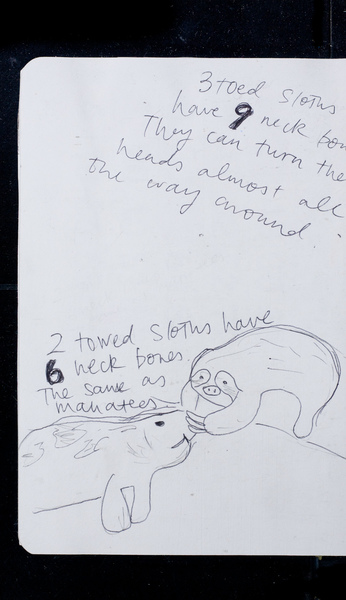 3 toed sloths
have 9 neck bon
They can turn the
heads almost all
the way around.
2 towed sloths have
6 neck bones.
The same as
manatees